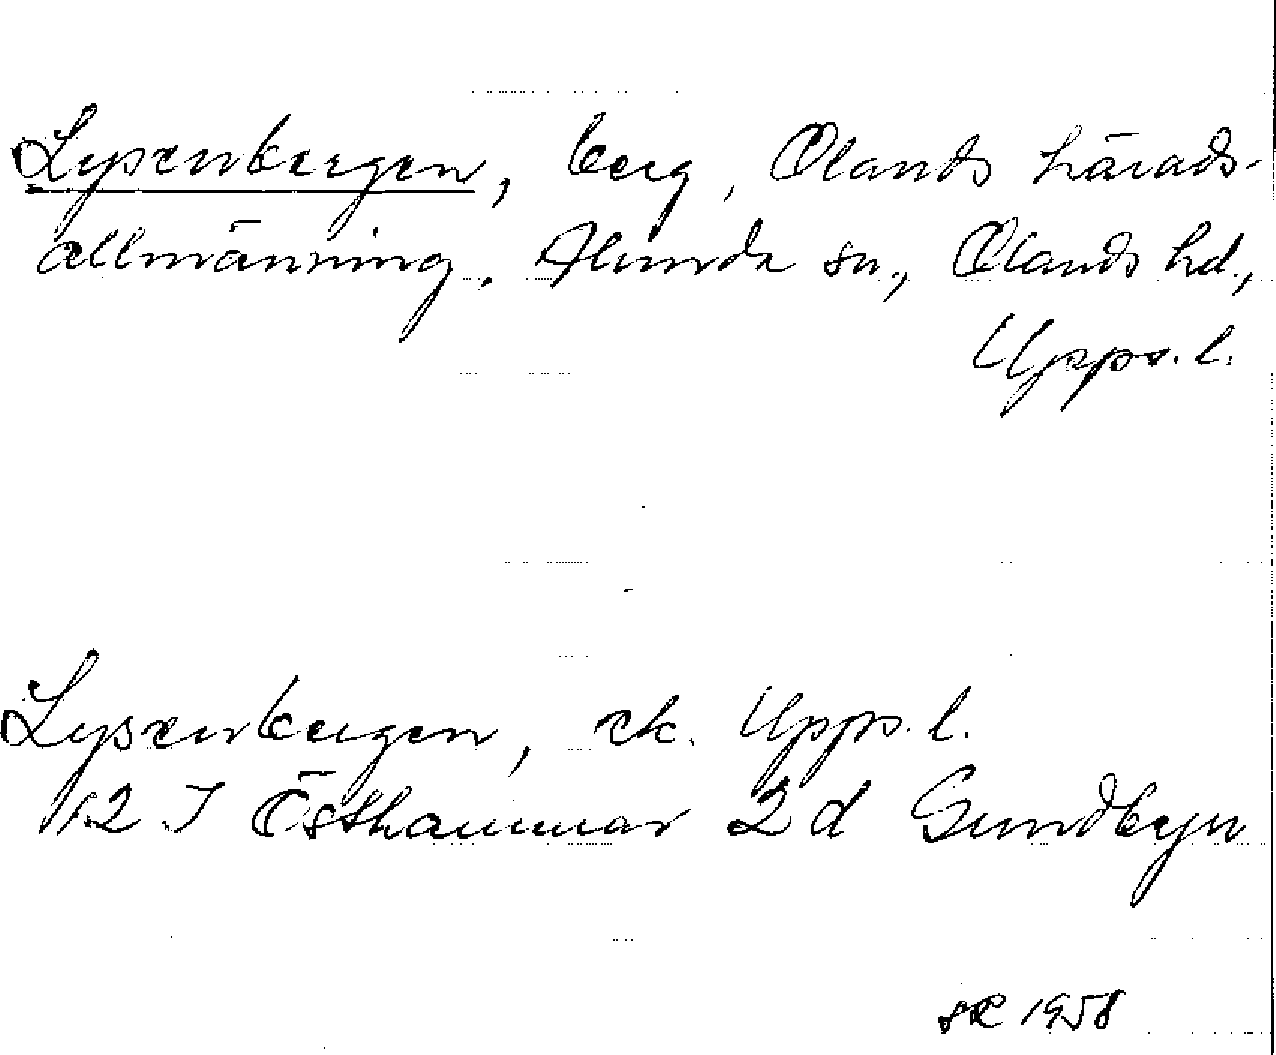 Lysenbergen, berg, Olands härads-
allmänning, Alunda sn., Olands hd.,
Upps. l.
Lysenbergen, ek. Upps. l.
12 I Östhammar 2 d Gundbyn
1958